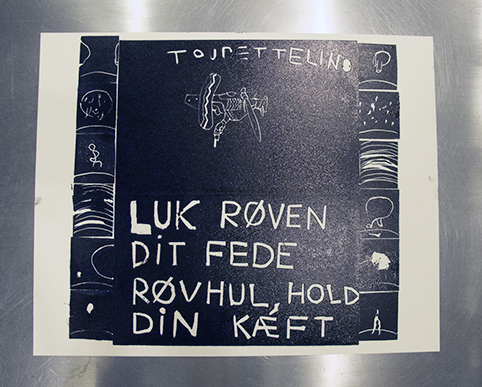 TOJRETTELING
LUK RØVEN
DiT FEDE
RØVHUL, HOLD
DiN KÆFT